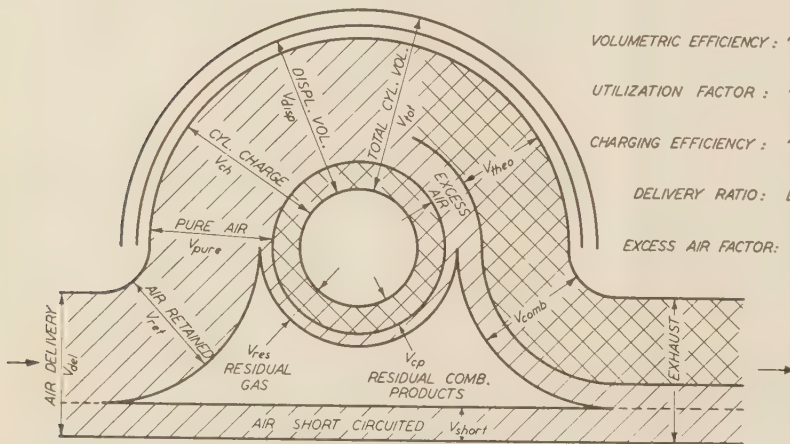 VOLUMETRIC EFFICIENCY :
UTILIZATION FACTOR :
CHARGING EFFICIENCY :
DELIVERY RATIO :
EXCESS AIR FACTOR:
DISPL. VOL.
Vdisp
TOTAL CYL. VOL.
Vtot
CYL. CHARGE
Vch
EXCESS
AIR
Vtheo
PURE AIR
Vpure
AIR RETAINED
Vret
AIR DELIVERY
Vdel
Vres
RESIDUAL
GAS
Vcp
RESIDUAL COMB.
PRODUCTS
Vcomb
EXHAUST
AIR SHORT CIRCUITED
Vshort